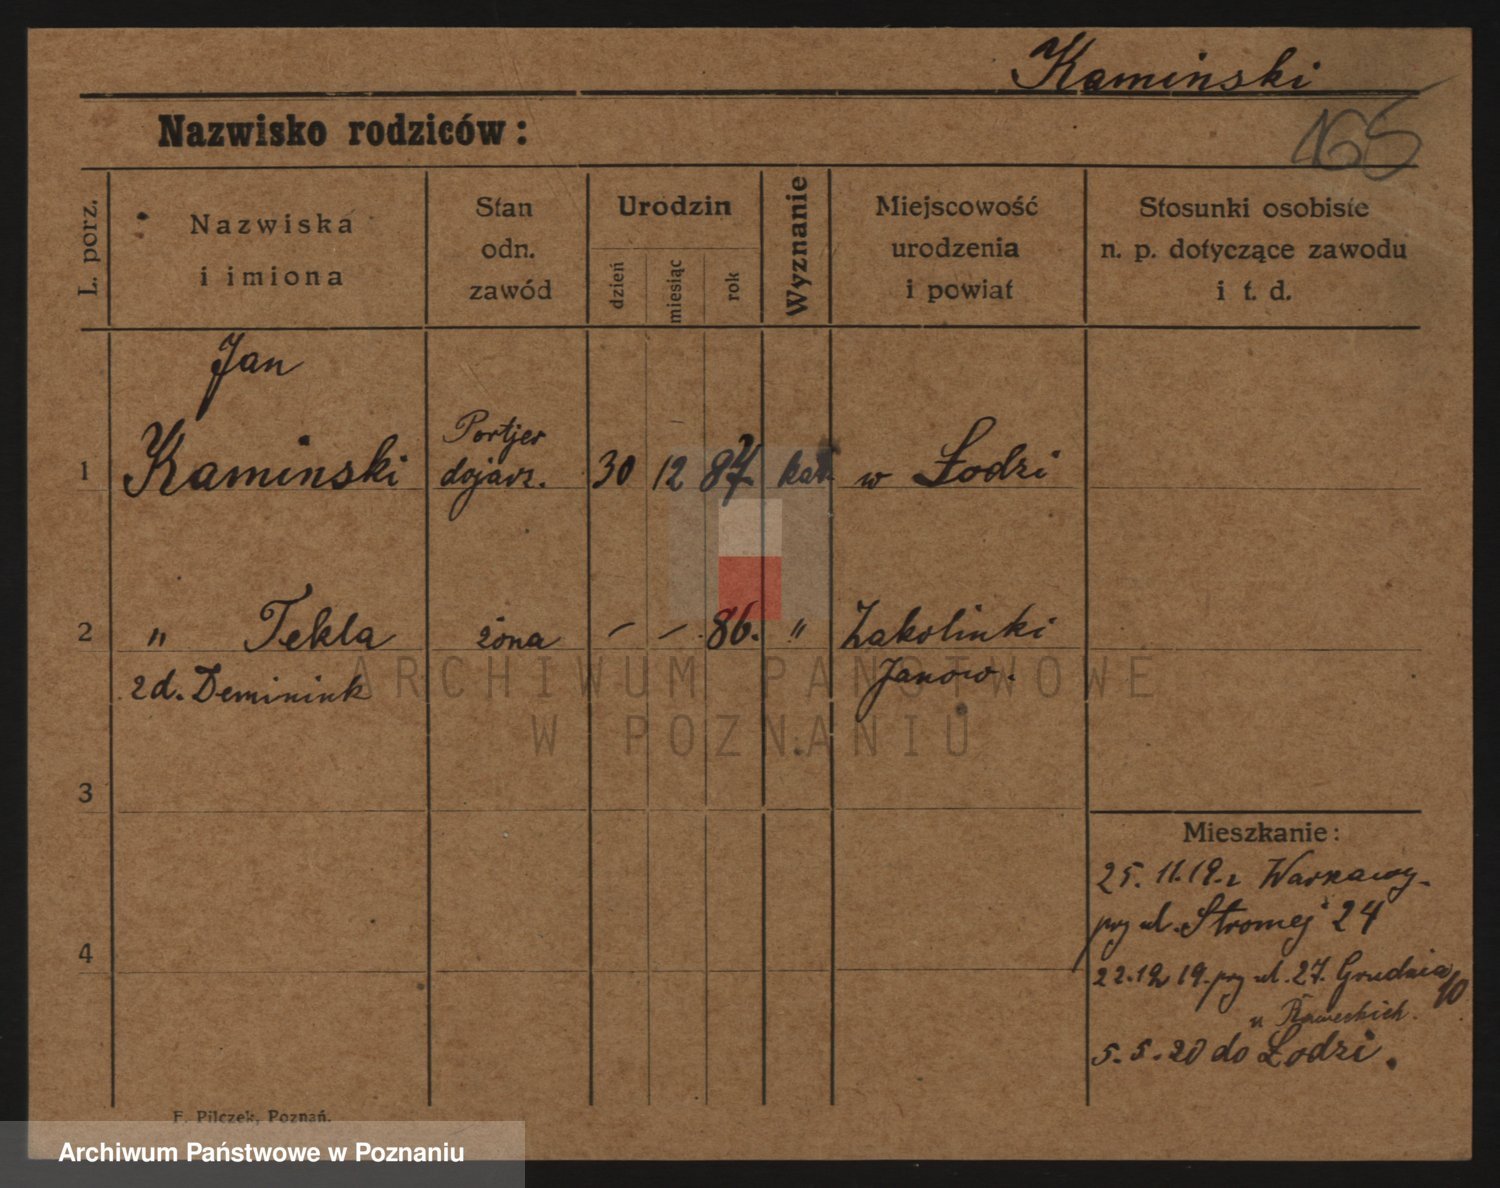 Kamiński
165
Nazwisko rodziców:
L. porz.
Nazwiska
i imiona
Stan
odn.
zawód
Urodzin
dzień
miesiąc
rok
Wyznanie
Miejscowość
urodzenia
i powiat
Stosunki osobiste
n. p. dotyczące zawodu
i t. d.
Jan
1 Kaminski Portjer 30 12 87 kat. w Łodzi
2 " Tekla żona — — 86. " Zakolinki
Janow.
3
4
Mieszkanie:
25. 11. 19. z Warszawy
przy ul. Stromej 24
22. 12 19. przy ul. 27. Grudnia 10
u
5. 5. 20 do Łodzi.
F. Pilczek, Poznań.
ARCHIWUM PAŃSTWOWE
W POZNANIU
Archiwum Państwowe w Poznaniu